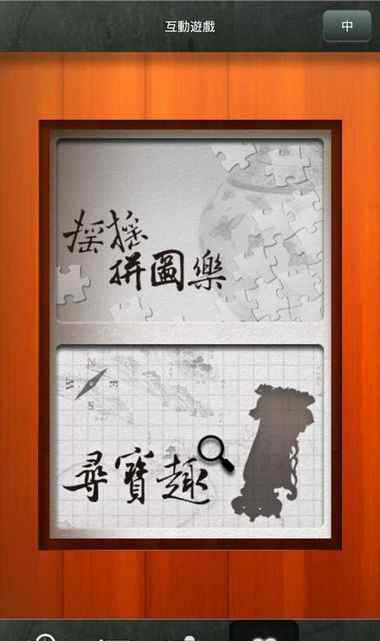 互動遊戲
中
搖搖
拼圖樂
N
E
S
W
尋寶趣